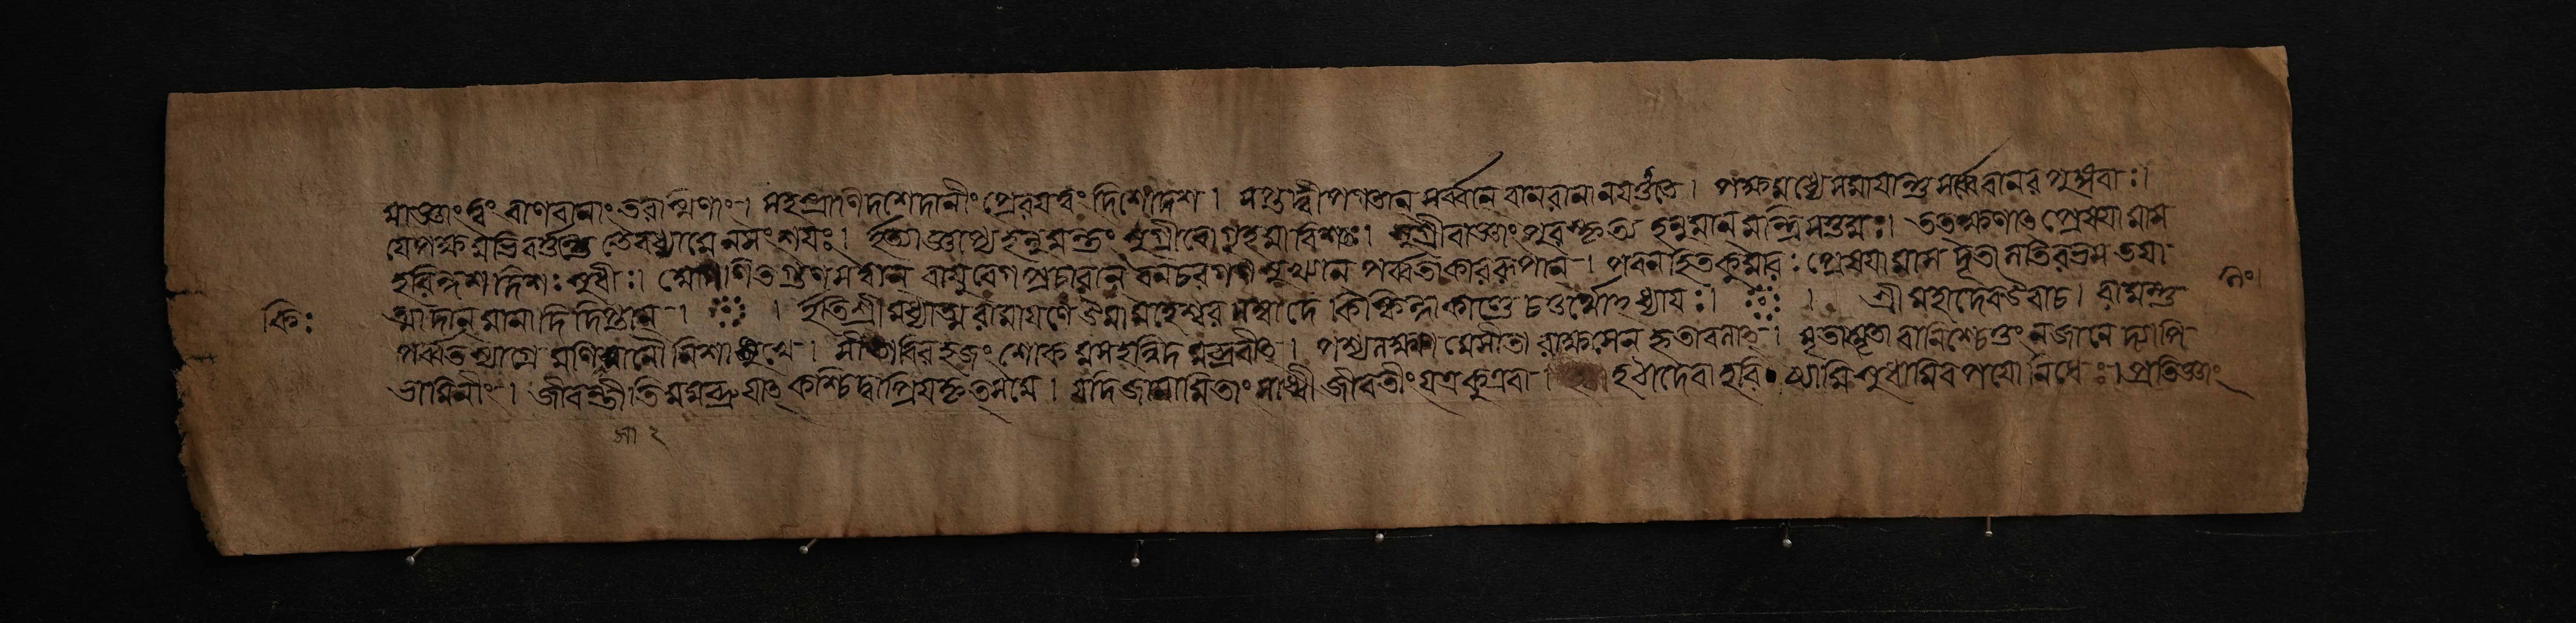 মাজ্ঞাং ত্বং বানরাণাং তরস্বিনাং। সহস্রাণি দশেদানীং প্রেরয়ত্বং দিশোদশ। সপ্তদ্বীপগতান সর্ব্বান বানরানানয়ন্তুতে। পক্ষমধ্যে সমায়ান্তু সর্ব্বে বানরপুঙ্গবাঃ।
যে পক্ষমতিবর্ত্তন্তে তে বধ্যা মে ন সংশয়ঃ। ইত্যাজ্ঞাপ্য হনুমন্তং সুগ্রীবো গৃহমাবিশৎ। সুগ্রীবাজ্ঞাং পুরস্কৃত্য হনুমান মন্ত্রিসত্তমঃ। ততক্ষণাৎ প্রেষয়ামাস
হরিন্দশ দিশঃ সুধীঃ। অগণিতগুণসত্বান বায়ুবেগপ্রচারান্ বনচরগণমুখ্যান পর্ব্বতাকাররূপান। পবনহিতকুমারঃ প্রেষয়ামাস দূতানতিরভসতয়া
কিঃ
ত্মা দানমানাদিতৃপ্তান। । ইতি শ্রীমধ্যাত্মরামায়ণে উমামহেশ্বরসম্বাদে কিষ্কিন্ধাকাণ্ডে চতুর্থোঽধ্যায়ঃ। । শ্রীমহাদেব উবাচ। রামস্তু
পর্ব্বতস্যাগ্রে মণিসানৌ নিশামুখে। সীতাবিরহজং শোকমসহন্নিদমব্রবীৎ। পশ্য লক্ষ্মণ মে সীতা রাক্ষসেন হৃতা বলাৎ। মৃতামৃতা বা নিশ্চেতুং ন জানেদ্যাপি
ভামিনীং। জীবন্তীতি মম ব্রূয়াৎ কশ্চিদ্বা প্রিয়কৃত্ স মে। যদি জানামি তাং সাধ্বীং জীবতীং যত্র কুত্র বা। হঠাদেবাহরিষ্যামি সুধামিব পয়োনিধেঃ। প্রতিজ্ঞাং